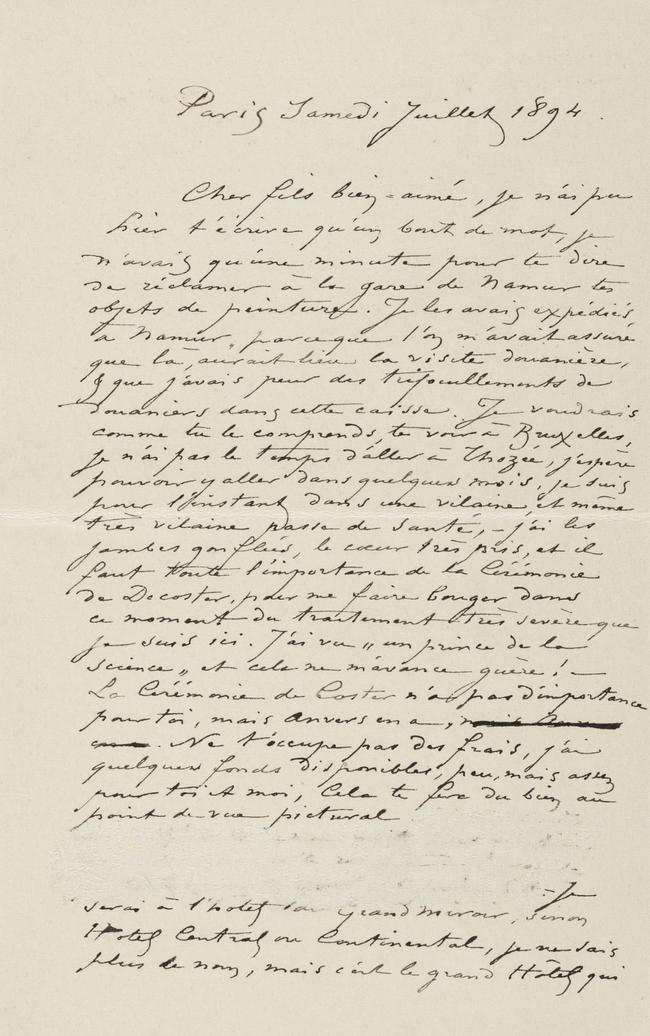 Paris Samedi Juillet 1894.
Cher fils bien-aimé, je n'ai pu
hier t'écrire qu'un bout de mot, je
n'avais qu'une minute pour te dire
de réclamer à la gare de Namur tes
objets de peinture. Je les avais expédiés
à Namur, parce que l'on m'avait assuré
que là, aurait lieu la visite douanière,
& que j'avais peur des trifouillements de
douaniers dans cette caisse. Je voudrais
comme tu le comprends, te voir à Bruxelles,
je n'ai pas le temps d'aller à Thozée, j'espère
pouvoir y aller dans quelques mois, je suis
pour l'instant dans une vilaine, et même
très vilaine passe de santé, – j'ai les
jambes gonflées, le cœur très pris, et il
faut toute l'importance de la Cérémonie
de Decoster, pour me faire bouger dans
ce moment du traitement très sevère que
je suis ici. J'ai vu „ un prince de la
science „ et cela ne m'avance guère! –
La Cérémonie de Coster n'a pas d'importance
pour toi, mais Anvers en a,
. Ne t'occupe pas des frais, j'ai
quelques fonds disponibles, peu, mais assez
pour toi et moi, Cela te fera du bien au
point de vue pictural
– Je
serai à l'hotel du grand miroir, sinon
Hôtel Central ou Continental, je ne sais
plus le nom, mais c'est le grand Hôtel qui